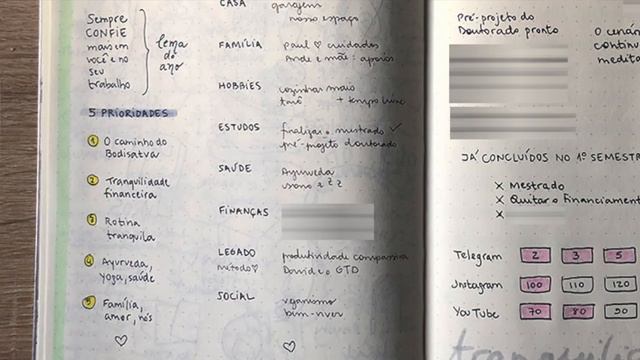 Sempre
CONFIE
mais em
você e no
seu
trabalho
lema
do
ano
5 PRIORIDADES
1 O caminho do
Bodisatva
2 Tranquilidade
financeira
3 Rotina
tranquila
4 Ayurveda,
yoga, saúde
5 Família,
amor, nós
CASA
garagem
nosso espaço
FAMÍLIA
Paul ♡ cuidados
Ande e mãe: apoios
HOBBIES
cozinhar mais
tarô + tempo livre
ESTUDOS
finalizar o mestrado ✓
pré-projeto doutorado
SAÚDE
Ayurveda
sono zzz
FINANÇAS
LEGADO
método ♡
produtividade compassiva
David e o GTD
SOCIAL
veganismo
bem-viver
Pré-projeto do
Doutorado pronto
O cená
continu
medita
JÁ CONCLUÍDOS NO 1º SEMEST
X Mestrado
X Quitar o Financiamen
X
Telegram 2 3 5
Instagram 100 110 120
YouTube 70 80 90
tranquili